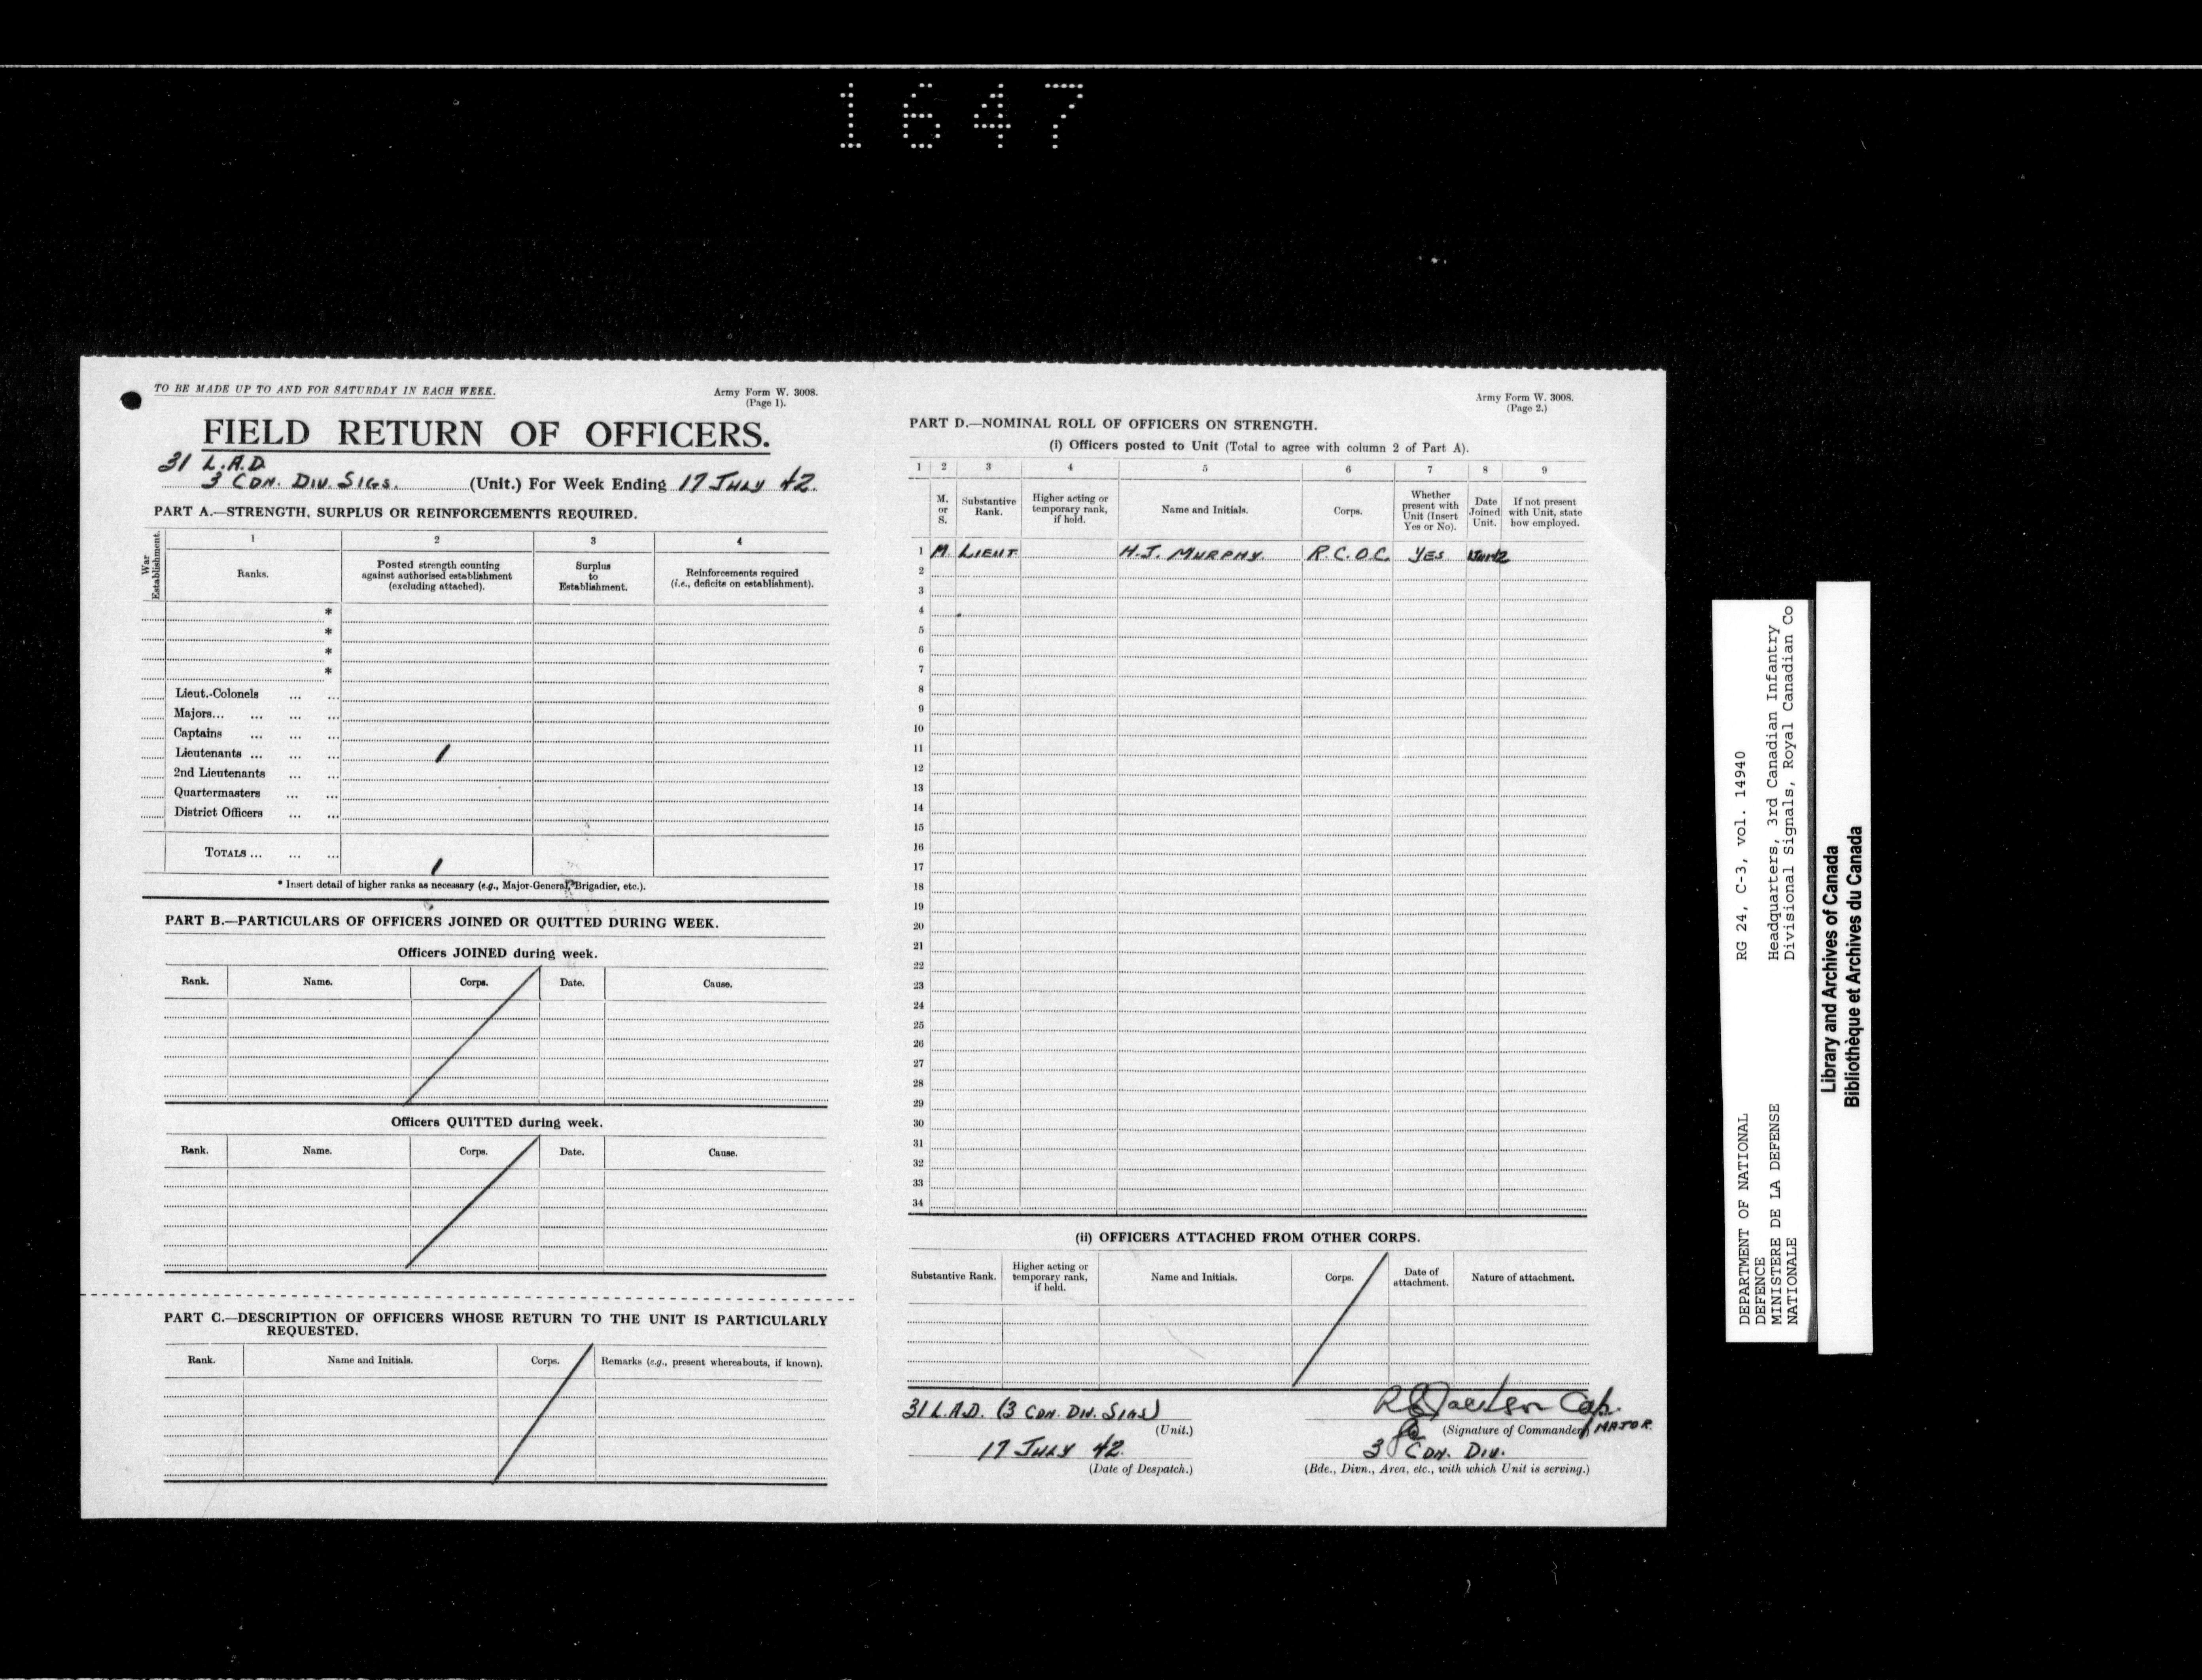 1647
TO BE MADE UP TO AND FOR SATURDAY IN EACH WEEK.
Army Form W. 3008.
(Page 1).
FIELD RETURN OF OFFICERS.
31 L.A.D.
3 CDN. DIV. SIGS. (Unit.) For Week Ending 17 JULY 42.
PART A.—STRENGTH, SURPLUS OR REINFORCEMENTS REQUIRED.
War Establishment.
1 2 3 4
Ranks.
Posted strength counting against authorised establishment (excluding attached).
Surplus to Establishment.
Reinforcements required (i.e., deficits on establishment).
*
*
*
*
Lieut.-Colonels ... ...
Majors... ... ... ...
Captains ... ... ...
Lieutenants ... ... ... 1
2nd Lieutenants ... ...
Quartermasters ... ...
District Officers ... ...
TOTALS ... ... ... 1
* Insert detail of higher ranks as necessary (e.g., Major-General, Brigadier, etc.).
PART B.—PARTICULARS OF OFFICERS JOINED OR QUITTED DURING WEEK.
Officers JOINED during week.
Rank. Name. Corps. Date. Cause.
Officers QUITTED during week.
Rank. Name. Corps. Date. Cause.
PART C.—DESCRIPTION OF OFFICERS WHOSE RETURN TO THE UNIT IS PARTICULARLY
REQUESTED.
Rank. Name and Initials. Corps. Remarks (e.g., present whereabouts, if known).
Army Form W. 3008.
(Page 2.)
PART D.—NOMINAL ROLL OF OFFICERS ON STRENGTH.
(i) Officers posted to Unit (Total to agree with column 2 of Part A).
1 2 3 4 5 6 7 8 9
M. or S.
Substantive Rank.
Higher acting or temporary rank, if held.
Name and Initials.
Corps.
Whether present with Unit (Insert Yes or No).
Date Joined Unit.
If not present with Unit, state how employed.
1 M LIEUT H.J. MURPHY. R.C.O.C. YES
2
3
4
5
6
7
8
9
10
11
12
13
14
15
16
17
18
19
20
21
22
23
24
25
26
27
28
29
30
31
32
33
34
(ii) OFFICERS ATTACHED FROM OTHER CORPS.
Substantive Rank.
Higher acting or temporary rank, if held.
Name and Initials.
Corps.
Date of attachment.
Nature of attachment.
31 L.A.D. (3 CDN. DIV. SIGS)
(Unit.)
17 JULY 42.
(Date of Despatch.)
Cap.
(Signature of Commander) MAJOR.
3 CDN. DIV.
(Bde., Divn., Area, etc., with which Unit is serving.)
DEPARTMENT OF NATIONAL
DEFENCE
MINISTERE DE LA DEFENSE
NATIONALE
RG 24, C-3, vol. 14940
Headquarters, 3rd Canadian Infantry
Divisional Signals, Royal Canadian Co
Library and Archives of Canada
Bibliothèque et Archives du Canada